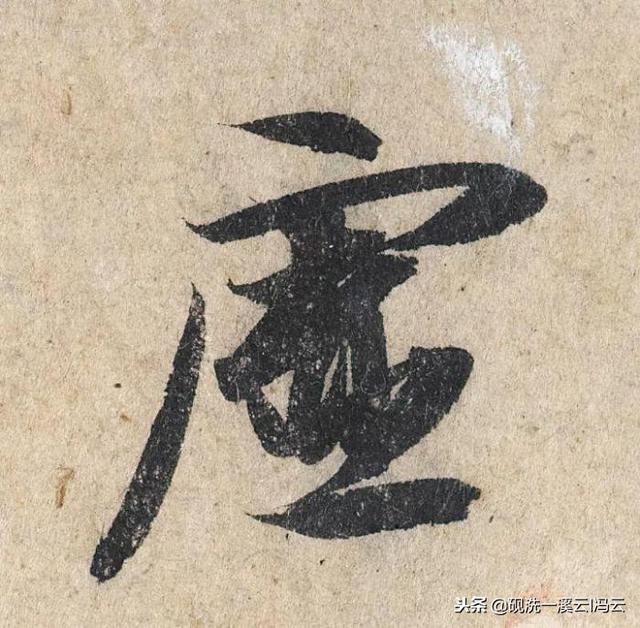 虚
头条 @砚洗一溪云|冯云